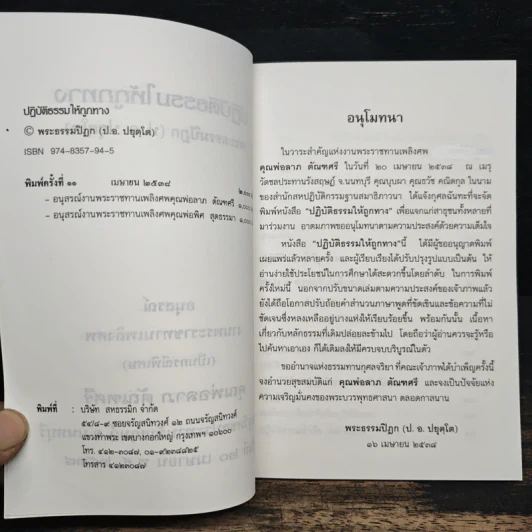 ปฏิบัติธรรมให้ถูกทาง
© พระธรรมปิฎก (ป.อ. ปยุตฺโต)
ISBN 974-8357-94-5
พิมพ์ครั้งที่ ๑๑ เมษายน ๒๕๓๘
– อนุสรณ์งานพระราชทานเพลิงศพคุณพ่อลาภ ตัณฑศรี
– อนุสรณ์งานพระราชทานเพลิงศพคุณพ่อพิศ สุดธรรมา
พิมพ์ที่ : บริษัท สหธรรมิก จำกัด
๕๔/๘-๙ ซอยจรัญสนิทวงศ์ ๑๒ ถนนจรัญสนิทวงศ์
แขวงท่าพระ เขตบางกอกใหญ่ กรุงเทพฯ ๑๐๖๐๐
โทร. ๔๑๒-๓๐๘๗, ๐๑-๙๒๓๘๘๒๕
โทรสาร ๔๑๒๓๐๘๗
อนุโมทนา
ในวาระสำคัญแห่งงานพระราชทานเพลิงศพ
คุณพ่อลาภ ตัณฑศรี ในวันที่ ๒๐ เมษายน ๒๕๓๘ ณ เมรุ
วัดชลประทานรังสฤษฎ์ จ.นนทบุรี คุณบุบผา คุณธวัช คณิตกุล ในนาม
ของสำนักสหปฏิบัติกรรมฐานสมาธิภาวนา ได้แจ้งกุศลฉันทะที่จะจัด
พิมพ์หนังสือ "ปฏิบัติธรรมให้ถูกทาง" เพื่อแจกแก่สาธุชนทั้งหลายที่
มาร่วมงาน อาตมภาพขออนุโมทนาตามความประสงค์ด้วยความเต็มใจ
หนังสือ "ปฏิบัติธรรมให้ถูกทาง"นี้ ได้มีผู้ขออนุญาตพิมพ์
เผยแพร่แล้วหลายครั้ง และผู้เรียบเรียงได้ปรับปรุงรูปแบบเป็นต้น ให้
อ่านง่ายใช้ประโยชน์ในการศึกษาได้สะดวกขึ้นโดยลำดับ ในการพิมพ์
ครั้งใหม่นี้ นอกจากปรับขนาดเล่มตามความประสงค์ของเจ้าภาพแล้ว
ยังได้ถือโอกาสปรับถ้อยคำสำนวนภาษาพูดที่ขัดเขินและข้อความที่ไม่
ชัดเจนซึ่งหลงเหลืออยู่บางแห่งให้เรียบร้อยขึ้น พร้อมกันนั้น เนื้อหา
เกี่ยวกับหลักธรรมที่เดิมปล่อยละข้ามไป โดยถือว่าผู้อ่านควรจะรู้หรือ
ไปค้นหาเอาเอง ก็ได้เติมลงให้มีครบจบบริบูรณ์ในตัว
ขออำนาจแห่งธรรมทานกุศลจริยา ที่คณะเจ้าภาพได้บำเพ็ญครั้งนี้
จงอำนวยสุขสมบัติแก่ คุณพ่อลาภ ตัณฑศรี และจงเป็นปัจจัยแห่ง
ความเจริญมั่นคงของพระบวรพุทธศาสนา ตลอดกาลนาน
พระธรรมปิฎก (ป. อ. ปยุตฺโต)
๑๖ เมษายน ๒๕๓๘